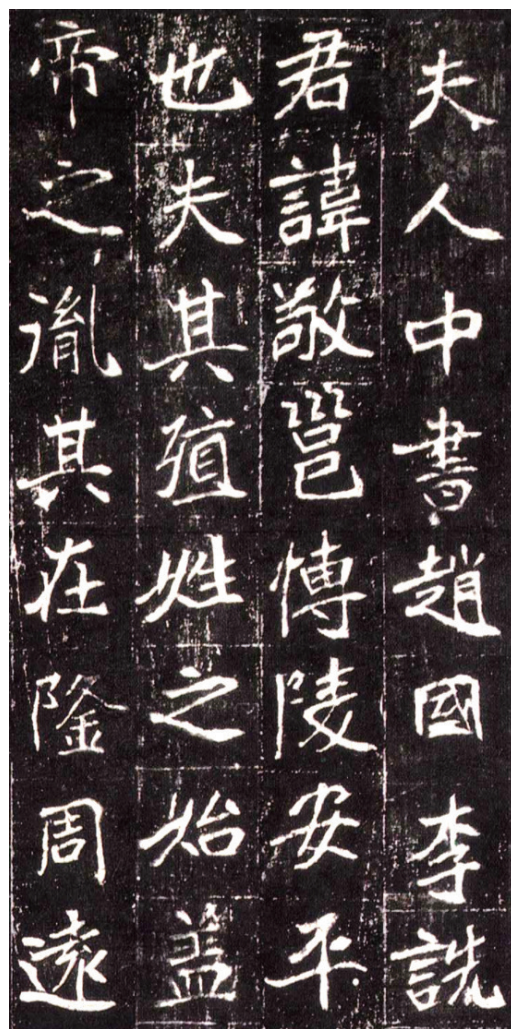 夫人中書趙國李詵
君諱敬邕愽陵安平
也夫其殖姓之始盖
帝之胤其在隆周遠